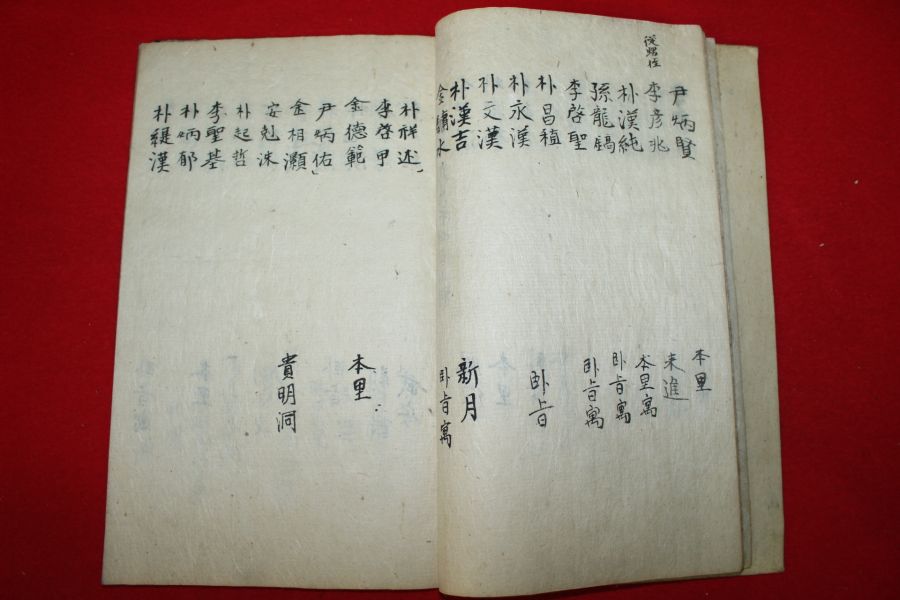 尹炳賢 本里
李彦兆 未進
朴漢純 本里寓
孫龍鎬 卧旨寓
李啓聖 卧旨寓
朴昌植
朴永漢 卧旨
朴文漢
朴漢吉 新月
金 水 卧旨寓
朴祥述
李啓甲
金德範 本里
尹炳佑
金相灝 貴明洞
安 洙
朴起哲
李聖基
朴炳郁
朴緹漢